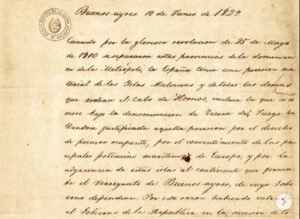 Buenos-ayres 10 de Junio de 1829.
Cuando por la gloriosa revolucion de 25 de Mayo
de 1810 se separaron estas provincias de la dominacion
de la Metrópoli, la España tenia una posesion ma-
terial de las Islas Malvinas, y de todas las demas
que rodean el Cabo de Hornos, incluso la que se co-
noce bajo la denominacion de Tierra del Fuego, ha-
llandose justificada aquella posesion por el derecho
de primer ocupante, por el consentimiento de las prin-
cipales potencias maritimas de Europa, y por la
adyacencia de estas islas al continente que forma-
ba el Vireynato de Buenos-ayres, de cuyo Gobierno
dependian. Por esta razon habiendo entrado
el Gobierno de la Republica en la sucesion de to-